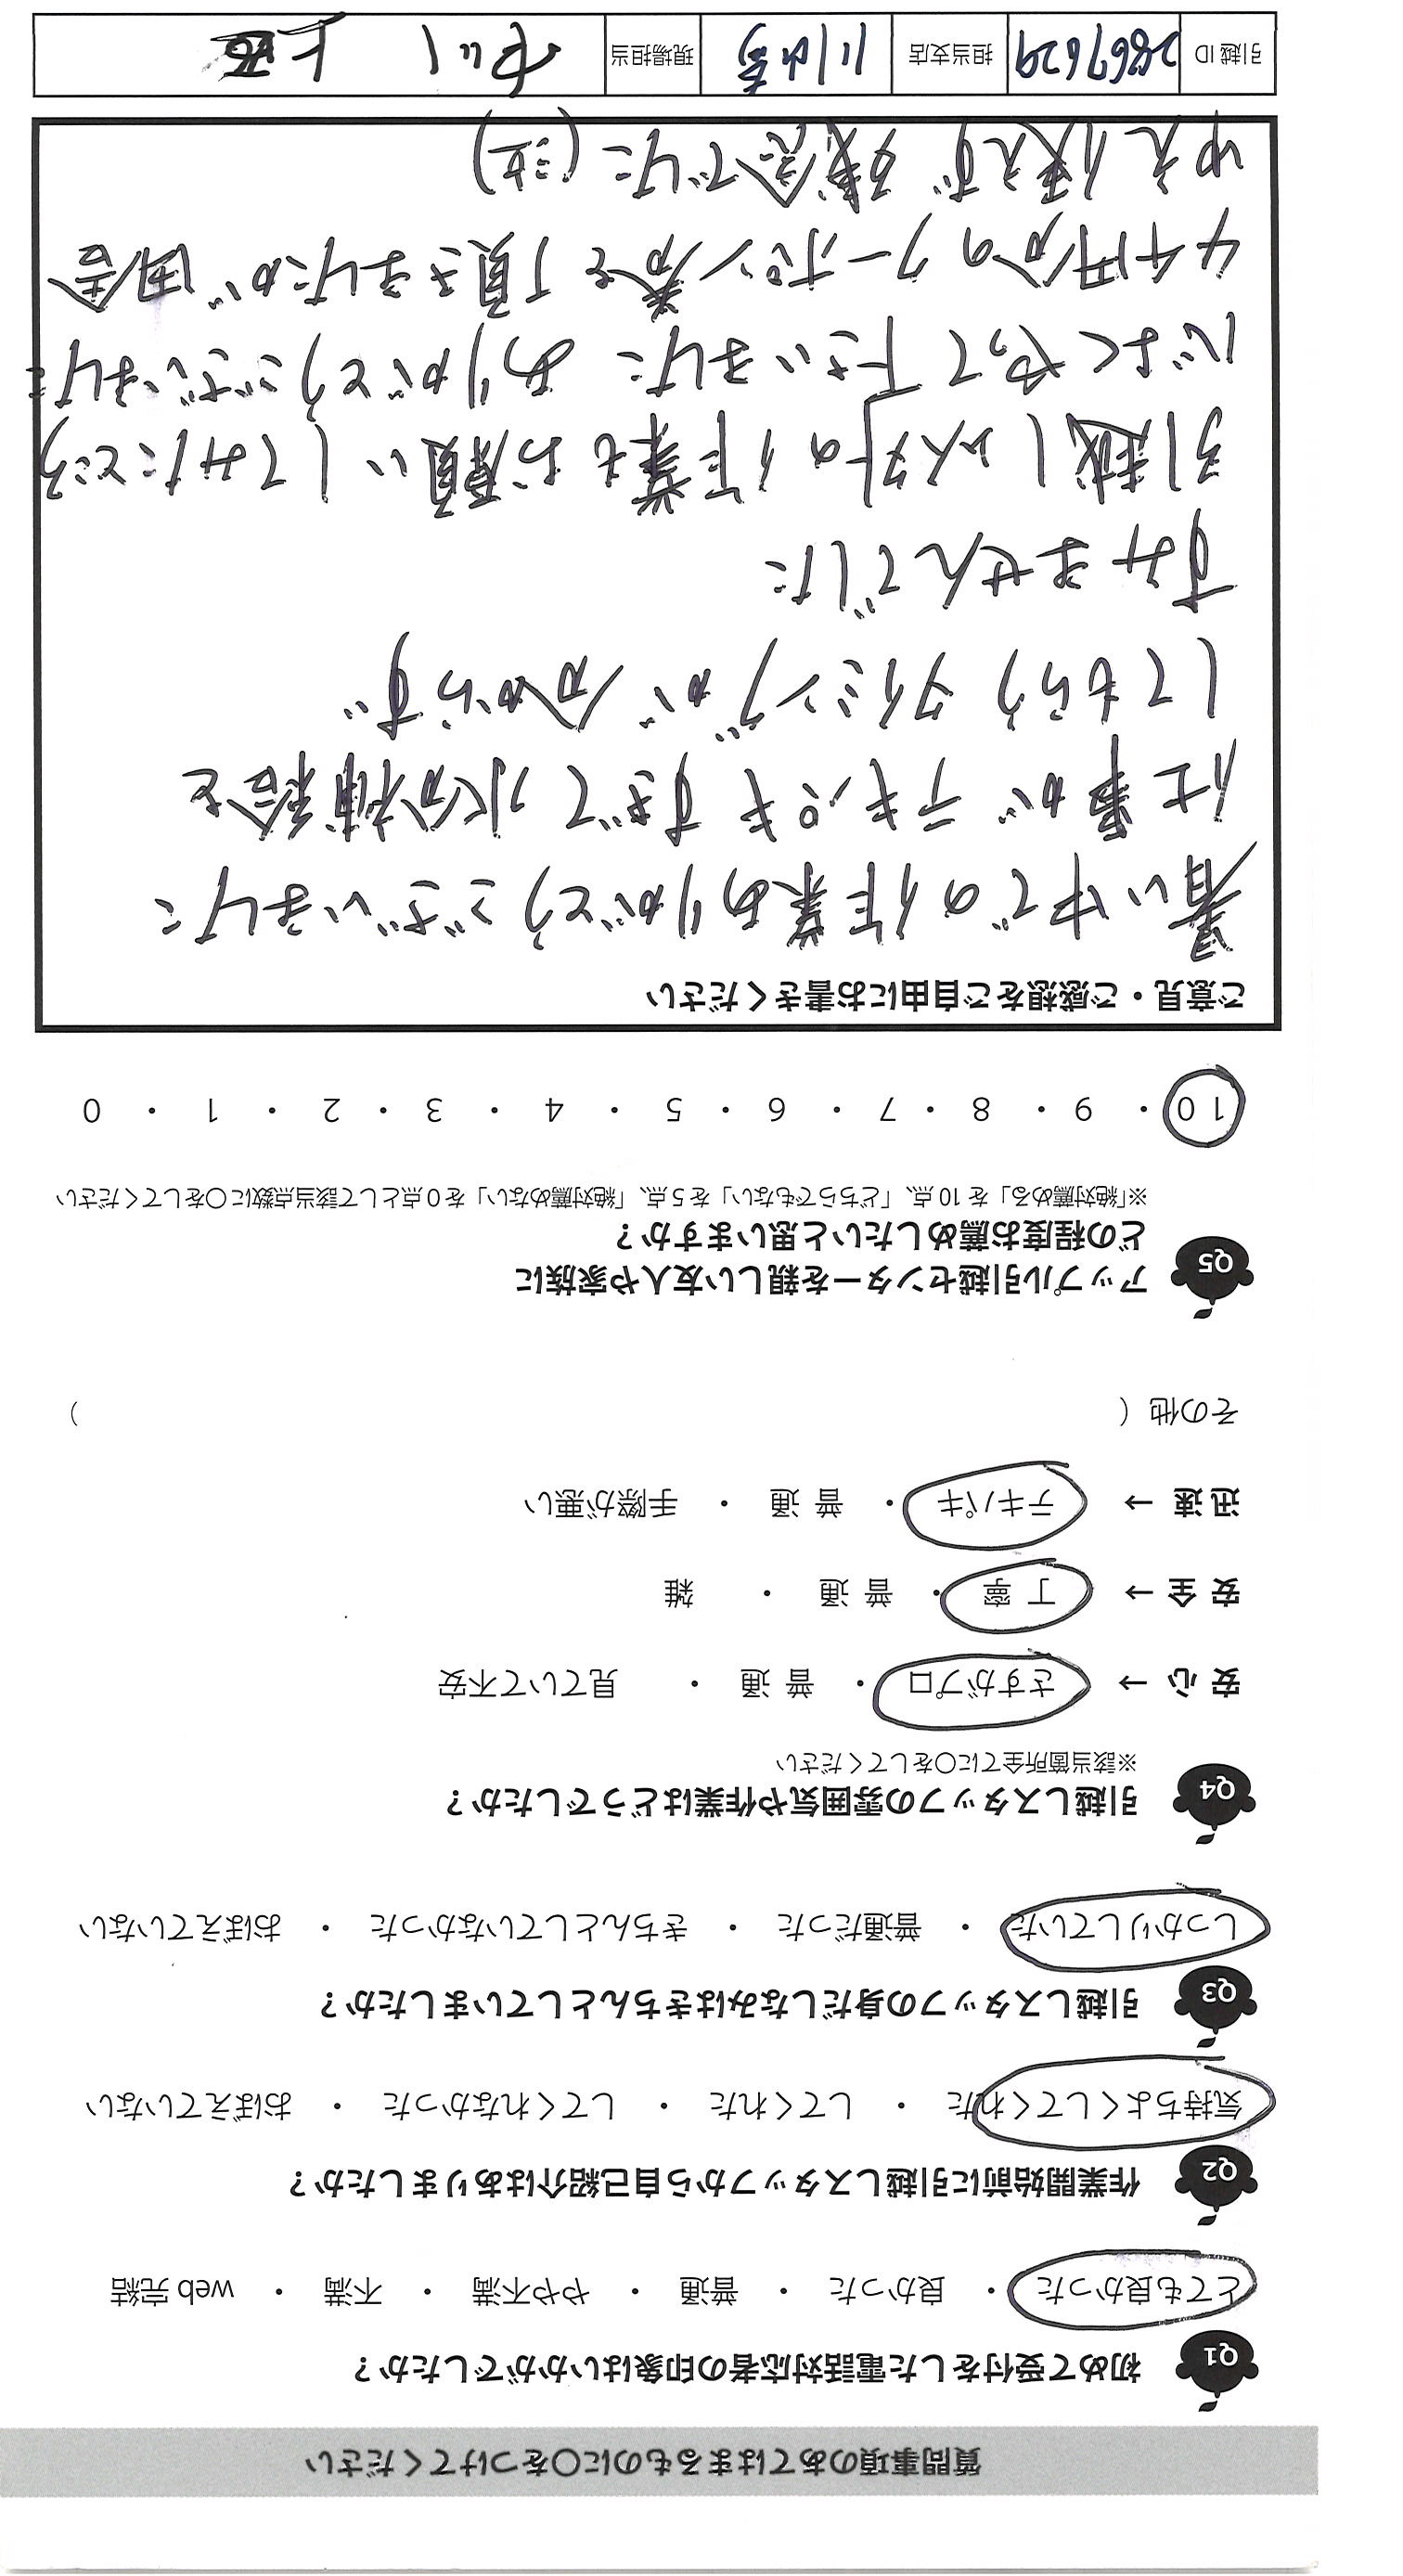 質問事項のあてはまるものに〇をつけてください
Q1 初めて受付をした電話対応者の印象はいかがでしたか?
とても良かった ・ 良かった ・ 普通 ・ やや不満 ・ 不満 ・ web 完結
Q2 作業開始前に引越しスタッフから自己紹介はありましたか?
気持ちよくしてくれた ・ してくれた ・ してくれなかった ・ おぼえていない
Q3 引越しスタッフの身だしなみはきちんとしていましたか?
しっかりしていた ・ 普通だった ・ きちんとしていなかった ・ おぼえていない
Q4 引越しスタッフの雰囲気や作業はどうでしたか?
※該当箇所全てに〇をしてください
安 心 → さすがプロ ・ 普 通 ・ 見ていて不安
安 全 → 丁 寧 ・ 普 通 ・ 雑
迅 速 → テキパキ ・ 普 通 ・ 手際が悪い
その他 ( )
Q5 アップル引越センターを親しい友人や家族に
どの程度お薦めしたいと思いますか?
※「絶対薦める」を 10 点、「どちらでもない」を 5 点、「絶対薦めない」を 0 点として該当点数に〇をしてください
10 ・ 9 ・ 8 ・ 7 ・ 6 ・ 5 ・ 4 ・ 3 ・ 2 ・ 1 ・ 0
ご意見・ご感想をご自由にお書きください
暑い中での作業ありがとうございました
仕事がテキパキすぎて水分補給を
してもらうタイミングが分からず
すみませんでした
引越し以外の作業もお願いしてみたところ
心よくやって下さいました ありがとうございました
4千円分のクーポン券を頂きましたが田舎
ゆえ使えず残念でした(泣)
引越 ID 2867629 担当支店 現場担当